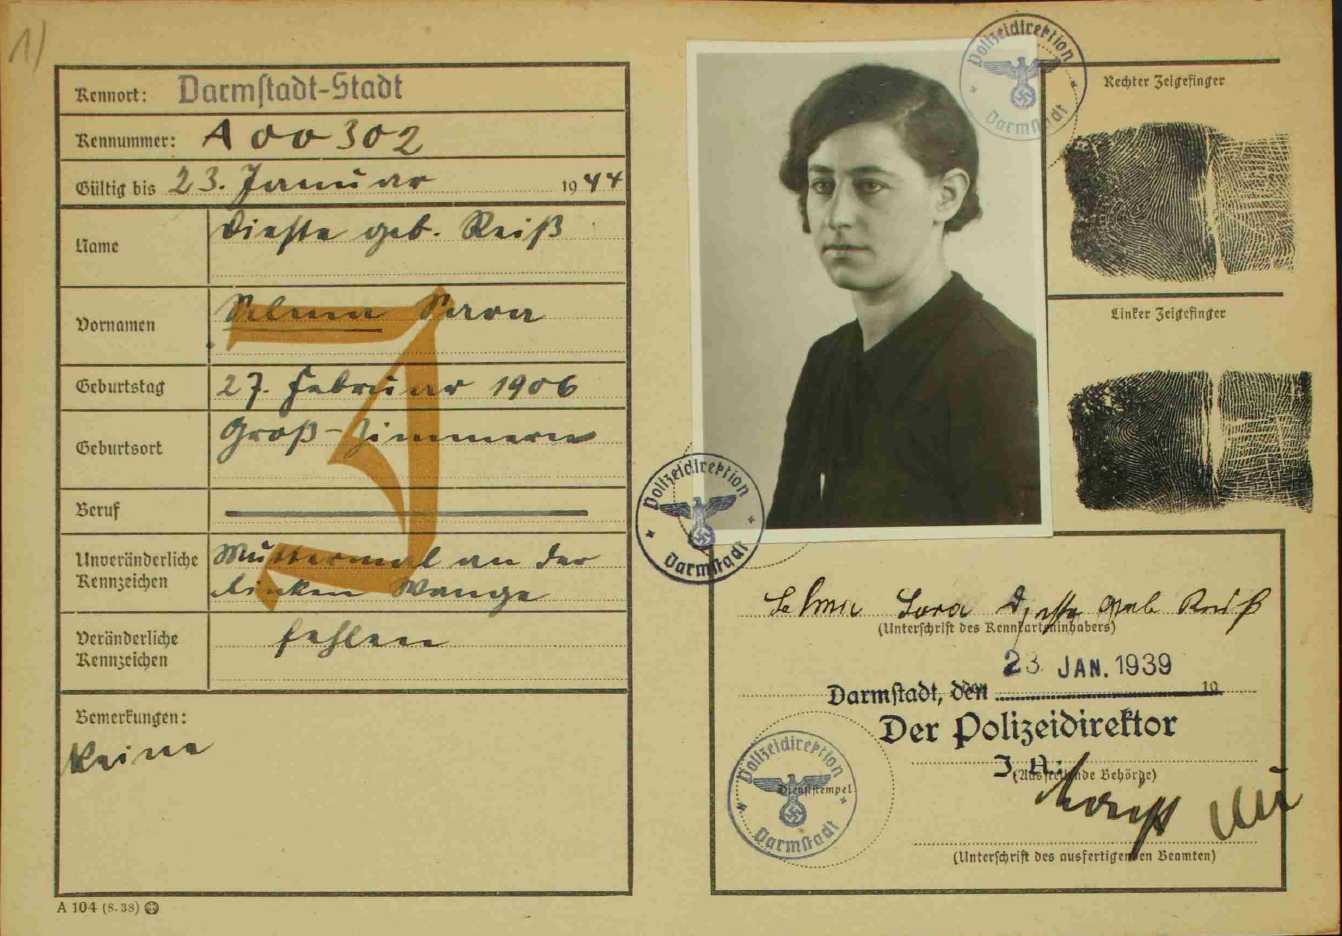 1)
Kennort: Darmstadt-Stadt
Kennummer: A 00302
Gültig bis 23. Januar 1944
Name
geb. Reiß
Vornamen
Selma Sara
Geburtstag 27. Februar 1906
Geburtsort Groß-Zimmern
Beruf
Unveränderliche Kennzeichen
Muttermal an der
linken Wange
Veränderliche Kennzeichen
fehlen
Bemerkungen:
Keine
A 104 (8. 38)
J
Polizeidirektion
Darmstadt
Polizeidirektion
Darmstadt
Rechter Zeigefinger
Linker Zeigefinger
Selma Sara geb Reiß
(Unterschrift des Kennkarteninhabers)
23. JAN. 1939
Darmstadt, den 19
Der Polizeidirektor
J. A.:
(Ausstellende Behörde)
Polizeidirektion
Dienststempel
Darmstadt
(Unterschrift des ausfertigenden Beamten)